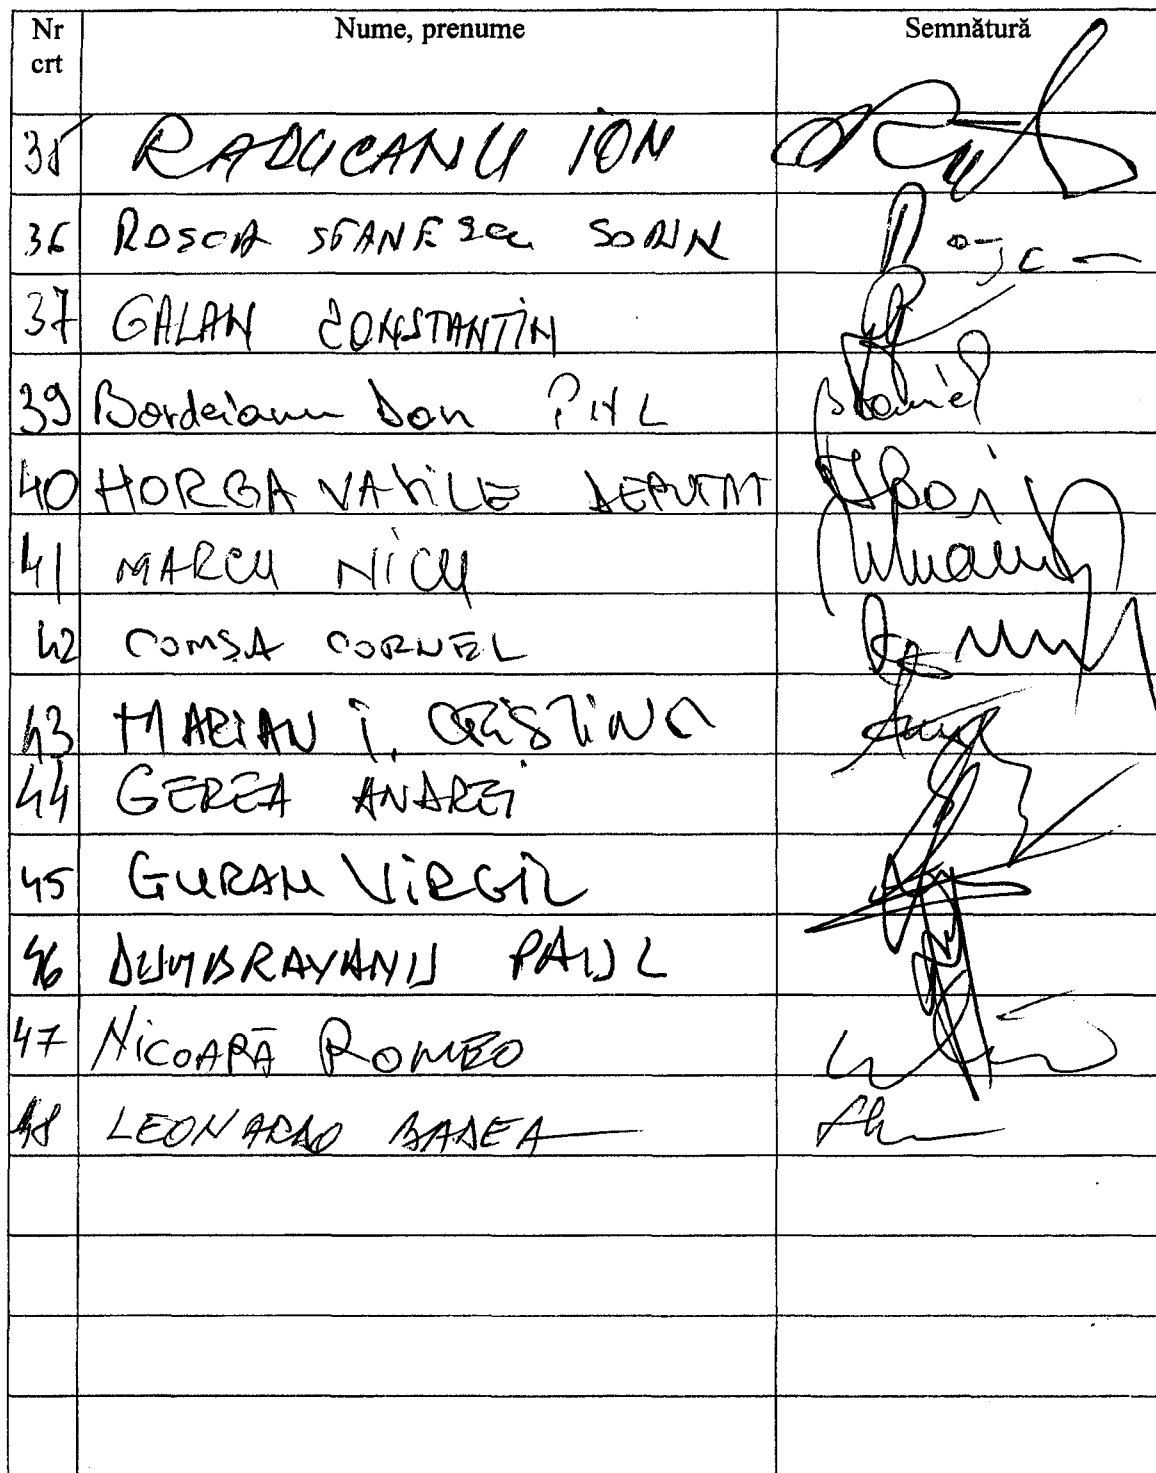 Nr crt Nume, prenume Semnătură
35 RADUCANU ION
36 ROSCA STANESCU SORIN
37 GALAN CONSTANTIN
39 Bordeianu Dan PNL
40 HORGA VASILE DEPUTAT
41 MARCU NICU
42 COMȘA CORNEL
43 MARIAN I. CRISTINA
44 GEREA ANDREI
45 GURAN VIRGIL
46 DUMBRAVANU PAUL
47 NICOARĂ ROMEO
48 LEONARDO BADEA